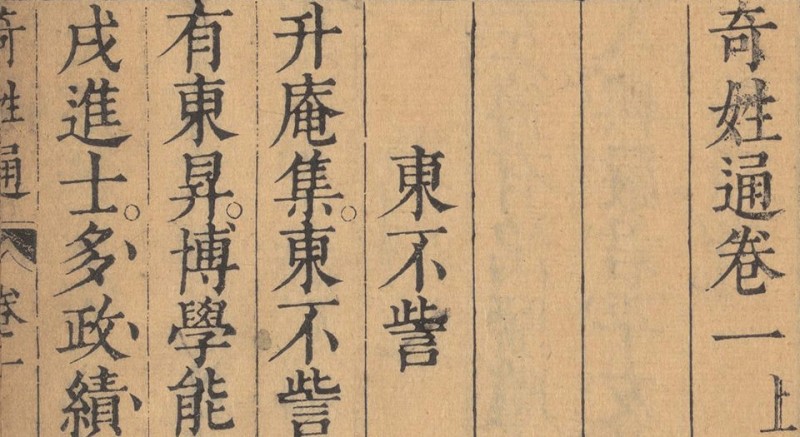 奇姓通卷一
上
東不訾
升庵集東不訾
有東昇博學能
戌進士多政績
奇姓通 卷一